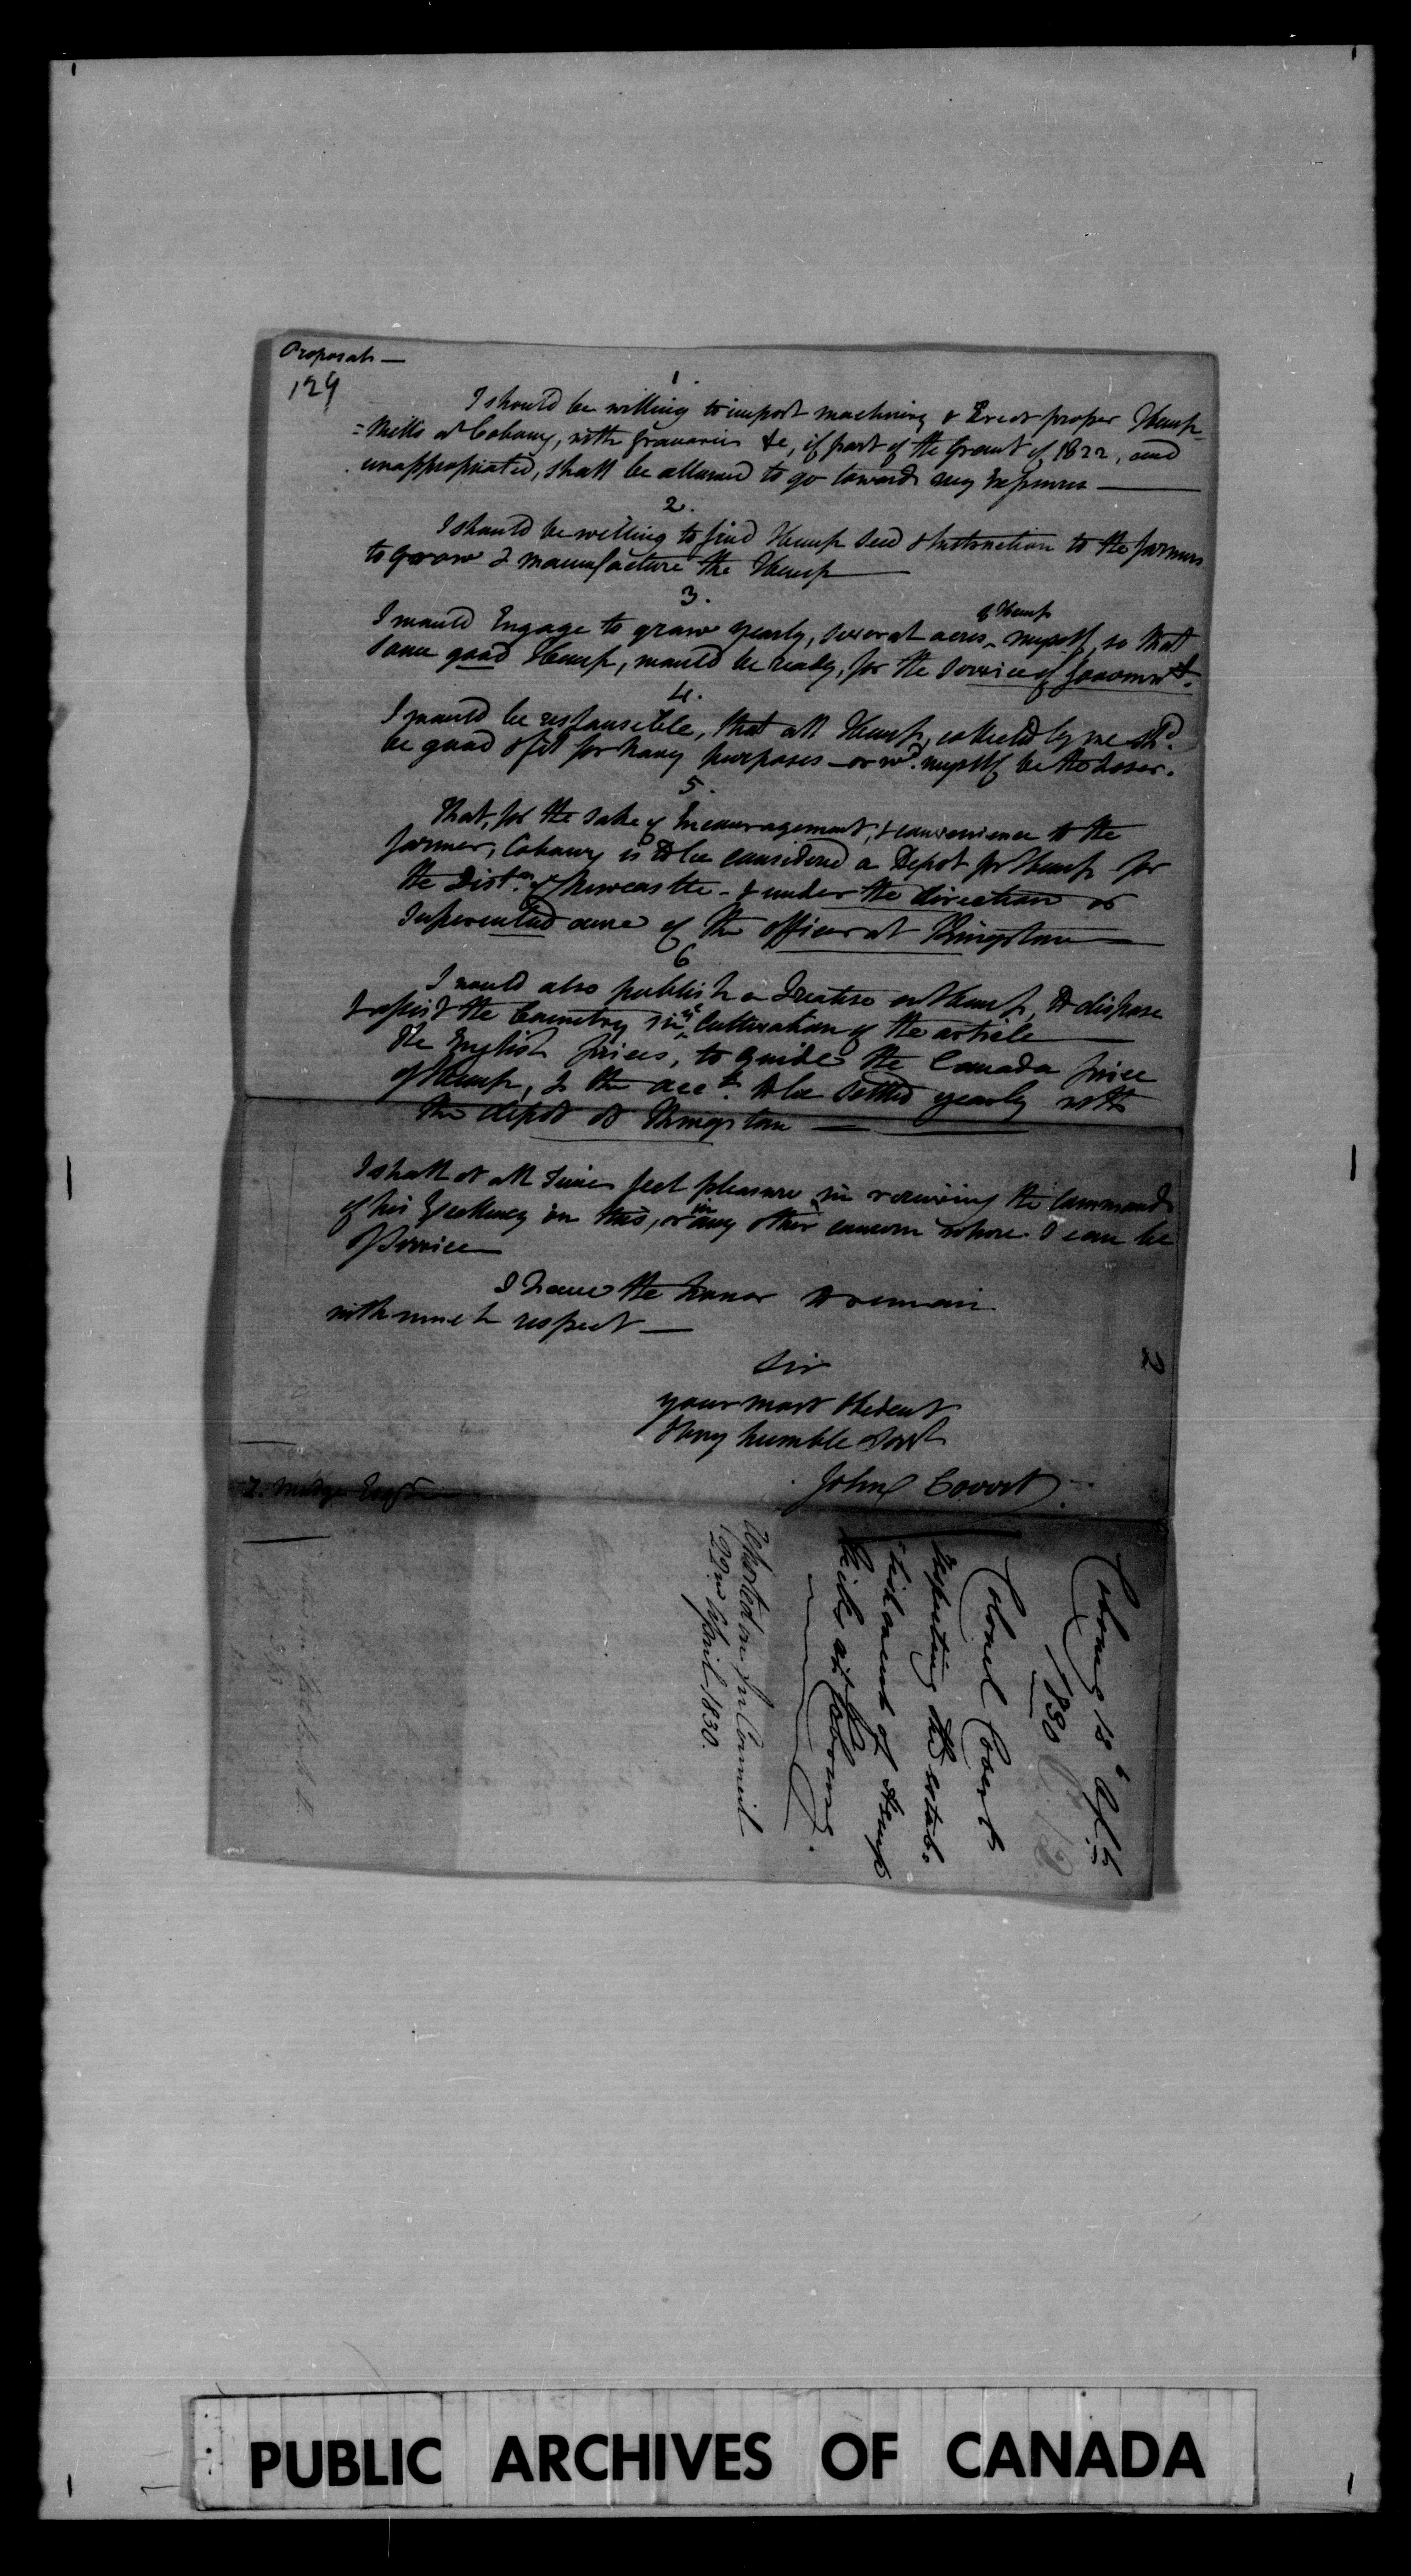 Proposals —
129
1.
I should be willing to import machinery & Erect proper Hemp-
= Mills at Cobourg, with Granaries &c, if part of the Grant of 1822, and
unappropriated, shall be allowed to go towards my Expenses —
2.
I should be willing to find Hemp Seed & Instruction to the farmers
to grow & manufacture the Hemp —
3.
of Hemp
I would Engage to grow yearly, several acres ^ myself, so that
some good Hemp, would be ready, for the service of Governmt.
4.
I would be responsible, that all Hemp, collected by me shd.
be good & fit for Navy purposes — or wd. myself be the loser.
5.
That, for the sake of Encouragement, & convenience to the
farmer, Cobourg is to be considered a Depot for Hemp for
the Dist. of Newcastle - & under the direction or
Superintendance of the officer at Kingston —
6
I would also publish a Treatise on Hemp, to dispose
& assist the Country in ye Cultivation of the article —
The English prices, to guide the Canada price
of Hemp, & the acct. to be settled yearly with
the depot at Kingston —
I shall at all times feel pleasure in receiving the Commands
of his Excellency in this, or in any other concern where I can be
of Service —
I have the honor to remain
with much respect —
Sir
your most obedient
& very humble Servt
John Covert
Z. Mudge Esqr
2
Cobourg 18th April
1830
Colonel Covert
respecting the estab-
-lishment of Hemp
Mills at Cobourg.
Reported on In Council
22nd April 1830.
PUBLIC ARCHIVES OF CANADA